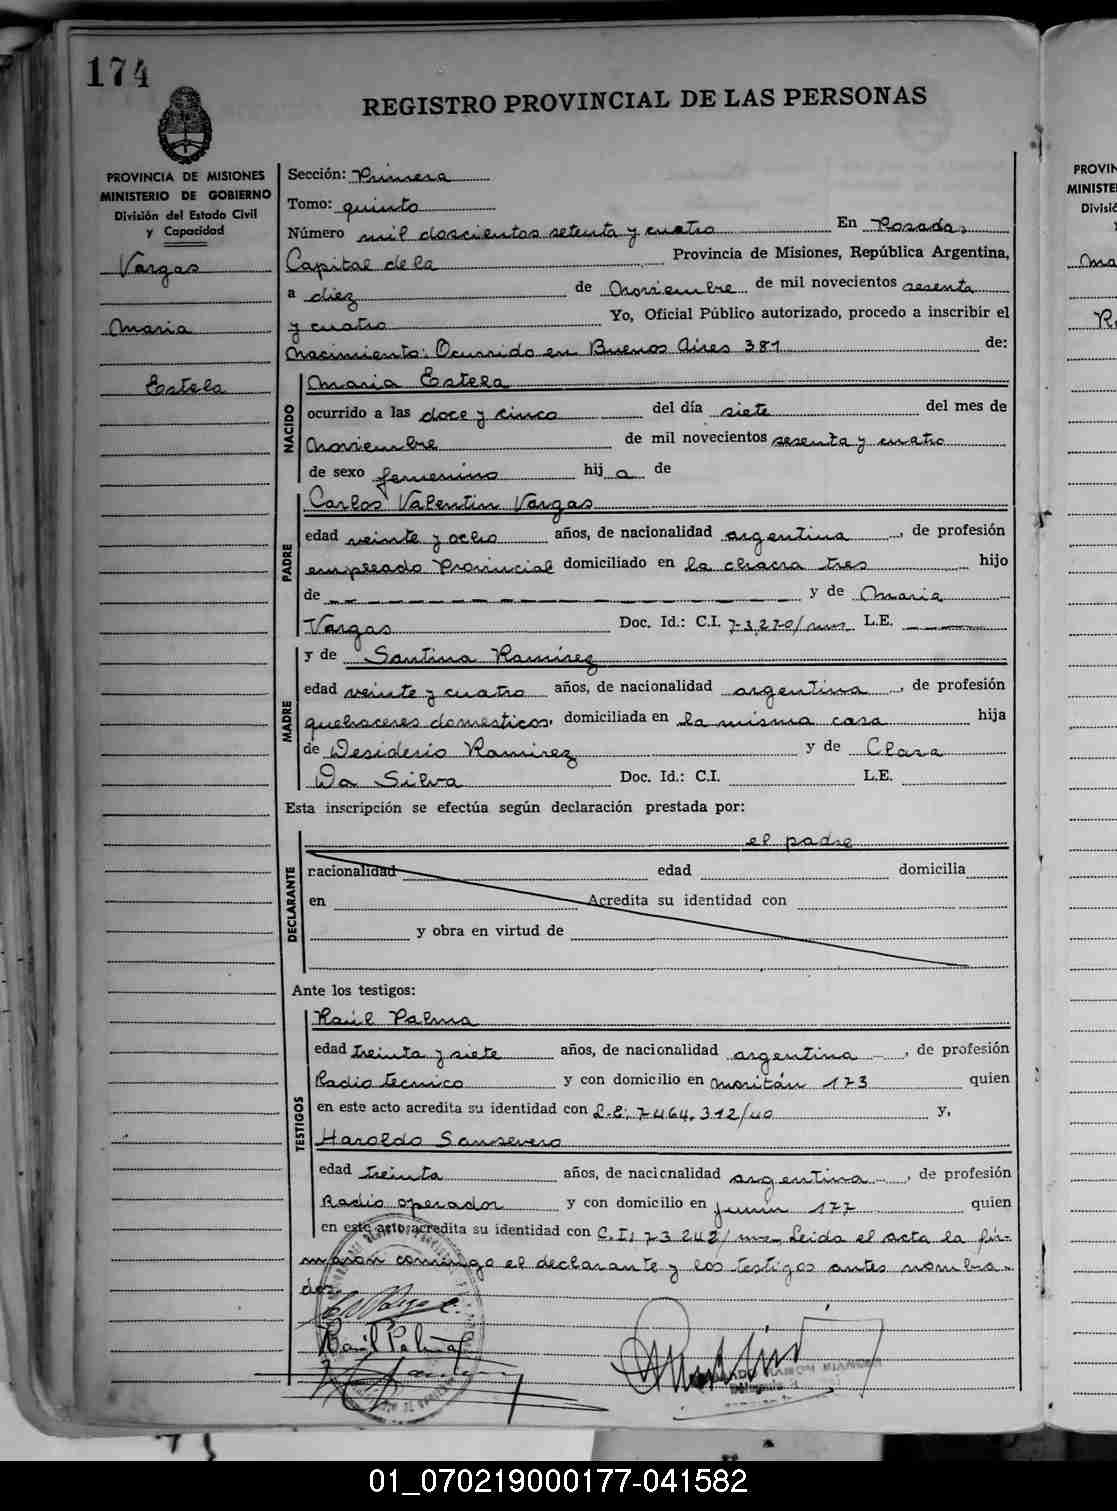 174
REGISTRO PROVINCIAL DE LAS PERSONAS
PROVINCIA DE MISIONES
MINISTERIO DE GOBIERNO
División del Estado Civil
y Capacidad
Vargas
Maria
Estela
Sección: Primera
Tomo: quinto
Número mil doscientos setenta y cuatro En Posadas,
Capital de la Provincia de Misiones, República Argentina,
a diez de Noviembre de mil novecientos sesenta
y cuatro Yo, Oficial Público autorizado, procedo a inscribir el
Nacimiento: Ocurrido en Buenos Aires 381 de:
NACIDO
Maria Estela
ocurrido a las doce y cinco del día siete del mes de
Noviembre de mil novecientos sesenta y cuatro
de sexo femenino hij a de
PADRE
Carlos Valentin Vargas
edad veinte y ocho años, de nacionalidad argentina, de profesión
empleado Provincial domiciliado en la chacra tres hijo
de y de Maria
Vargas Doc. Id.: C.I. 73,270/ L.E.
MADRE
y de Santina Ramirez
edad veinte y cuatro años, de nacionalidad argentina, de profesión
quehaceres domesticos, domiciliada en la misma casa hija
de Desiderio Ramirez y de Clara
Da Silva Doc. Id.: C.I. L.E.
Esta inscripción se efectúa según declaración prestada por:
DECLARANTE
el padre
racionalidad edad domicilia
en Acredita su identidad con
y obra en virtud de
Ante los testigos:
TESTIGOS
Raúl Palma
edad treinta y siete años, de nacionalidad argentina, de profesión
Radio tecnico y con domicilio en 173 quien
en este acto acredita su identidad con L.E: 7464.312/40 y,
Haroldo Sansevero
edad treinta años, de nacicnalidad argentina, de profesión
Radio operador y con domicilio en Junin 177 quien
en este acto acredita su identidad con C.I; 73 242/ Leida el acta la fir-
maron conmigo el declarante y los testigos antes nombra-
dos.
Raúl Palma
PROVIN
MINISTE
Divisió
Ma
01_070219000177-041582